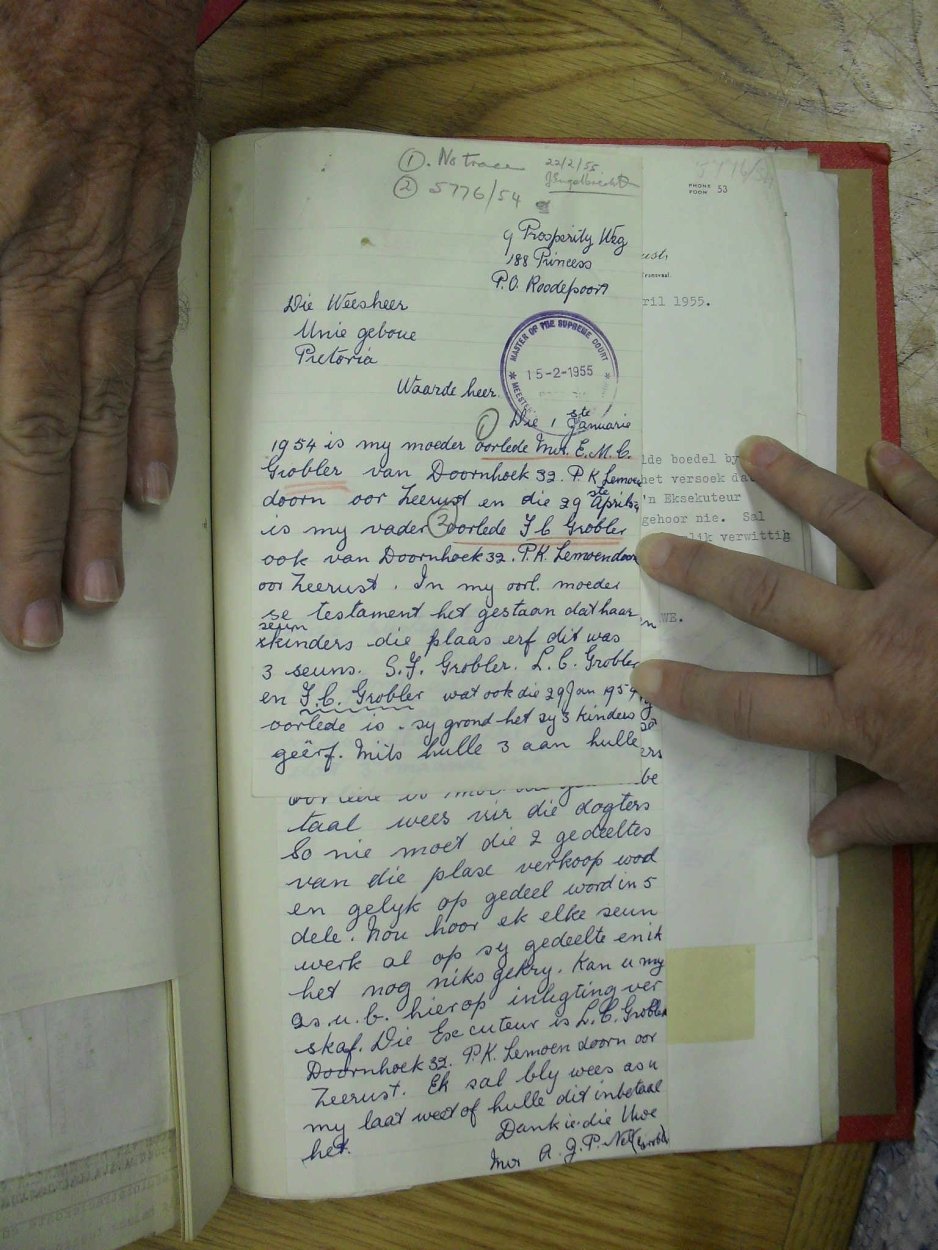 ① No trace 22/2/55
② 5776/54
9 Prosperity Weg
188 Princess
P.O. Roodepoort
Die Weesheer
Unie geboue
Pretoria
MASTER OF THE SUPREME COURT
15-2-1955
Waarde heer.
① Die 1ste Januarie
1954 is my moeder oorlede Mrs. E.M.C.
Grobler van Doornhoek 32. P.K. Lemoen
doorn oor Zeerust en die 29ste April
is my vader ② oorlede F C Grobler
ook van Doornhoek 32. P.K. Lemoendoorn
oor Zeerust. In my oorl. moeder
se testament het gestaan dat haar
seun
xkinders die plaas erf dit was
3 seuns. S.J. Grobler. L.C. Grobler
en F.C. Grobler wat ook die 29 Jan 1954
oorlede is. sy grond het sy 3 kinders
geërf. Mits hulle 3 aan hulle
be
taal wees vir die dogters
So nie moet die 2 gedeeltes
van die plase verkoop word
en gelyk op gedeel word in 5
dele. Nou hoor ek elke seun
werk al op sy gedeelte en ik
het nog niks gekry. Kan u my
as.u.b. hierop inligting ver
skaf. Die Executeur is L.C. Grobler
Doornhoek 32. P.K. Lemoen doorn oor
Zeerust. Ek sal bly wees as u
my laat weet of hulle dit inbetaal
het. Dankie die Uwe
Mrs A. J. P. Nel
5776/54
PHONE
FOON 53
ril 1955.
lde boedel by
het versoek dat
'n Eksekuteur
gehoor nie. Sal
lik verwittig
WE.